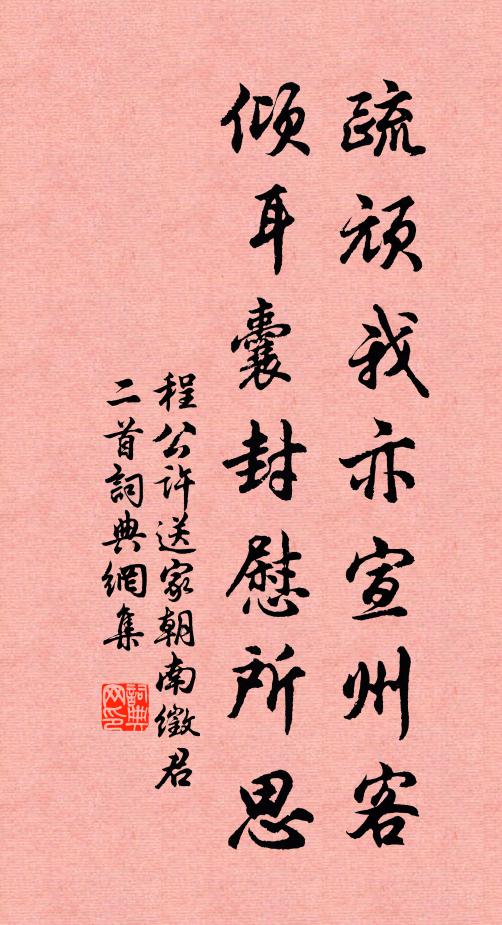 疏頑我亦宣州客
傾耳囊封慰所思
程公許送家朝南徵君
二首詞典網集
詞典网印